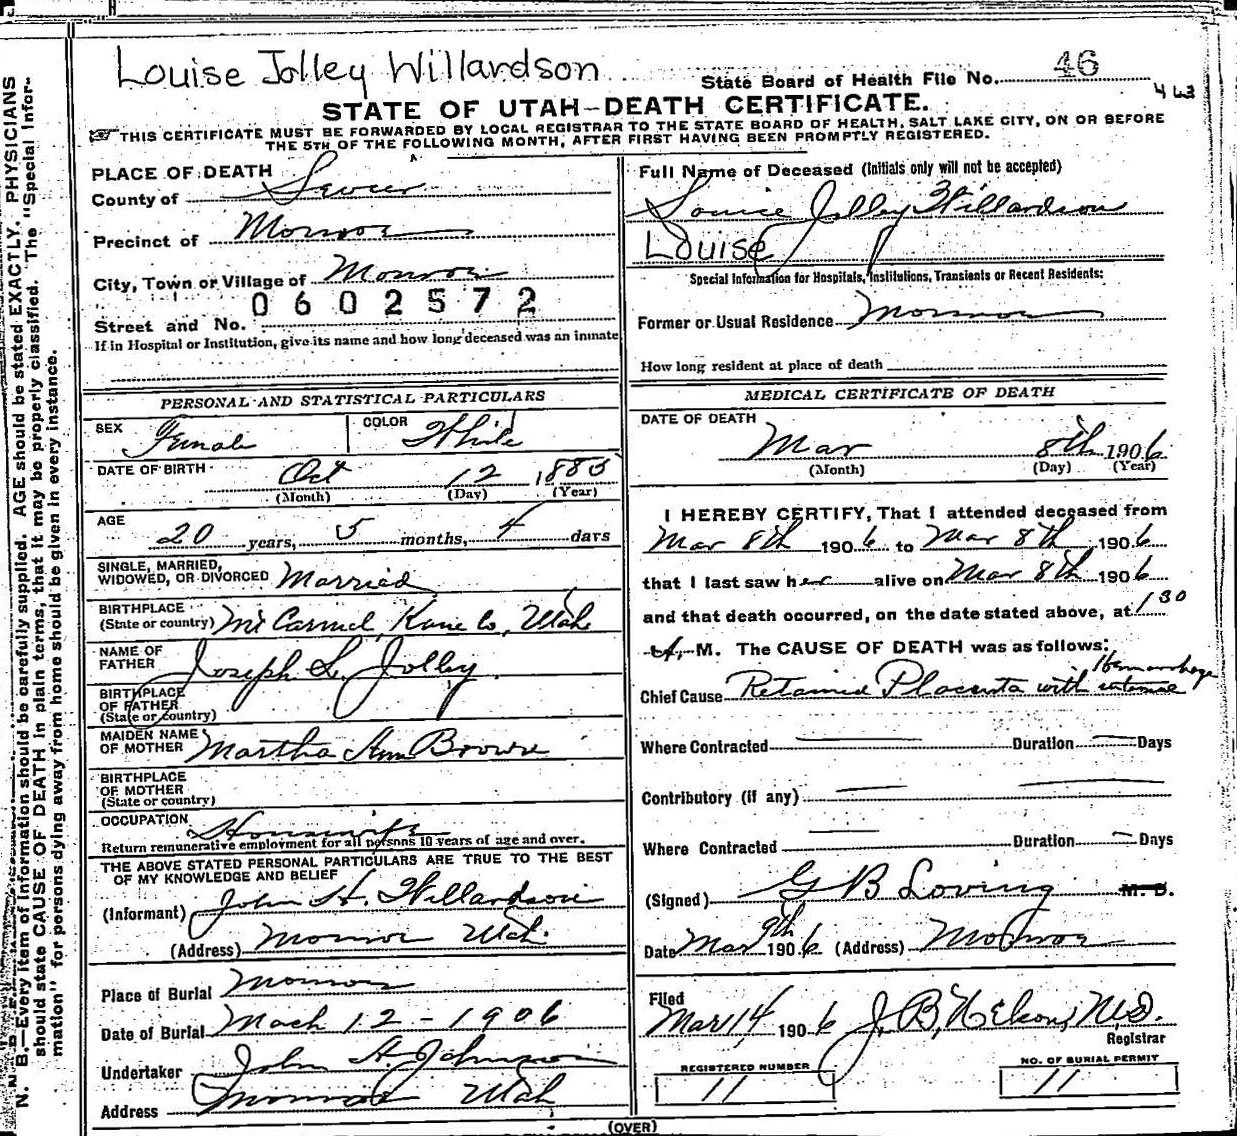 Louise Jolley Willardson
State Board of Health File No. 46
463
STATE OF UTAH—DEATH CERTIFICATE.
THIS CERTIFICATE MUST BE FORWARDED BY LOCAL REGISTRAR TO THE STATE BOARD OF HEALTH, SALT LAKE CITY, ON OR BEFORE
THE 5TH OF THE FOLLOWING MONTH, AFTER FIRST HAVING BEEN PROMPTLY REGISTERED.
PLACE OF DEATH
County of Sevier
Precinct of Monroe
City, Town or Village of Monroe
0602572
Street and No.
If in Hospital or Institution, give its name and how long deceased was an inmate
PERSONAL AND STATISTICAL PARTICULARS
SEX Female COLOR White
DATE OF BIRTH Oct 12, 1885
(Month) (Day) (Year)
AGE
20 years, 5 months, 4 days
SINGLE, MARRIED,
WIDOWED, OR DIVORCED Married
BIRTHPLACE
(State or country) Mt Carmel, Kane Co, Utah
NAME OF
FATHER Joseph L. Jolley
BIRTHPLACE
OF FATHER
(State or country)
MAIDEN NAME
OF MOTHER Martha Ann Brown
BIRTHPLACE
OF MOTHER
(State or country)
OCCUPATION Housewife
Return remunerative employment for all persons 10 years of age and over.
THE ABOVE STATED PERSONAL PARTICULARS ARE TRUE TO THE BEST
OF MY KNOWLEDGE AND BELIEF
(Informant) John H. Willardson
(Address) Monroe Utah.
Place of Burial Monroe
Date of Burial Mach 12 - 1906
Undertaker John H. Johnson
Address Monroe Utah
Full Name of Deceased (Initials only will not be accepted)
Louise Jolley Willardson
Louise
Special Information for Hospitals, Institutions, Transients or Recent Residents:
Former or Usual Residence Monroe
How long resident at place of death
MEDICAL CERTIFICATE OF DEATH
DATE OF DEATH
Mar 8th 1906
(Month) (Day) (Year)
I HEREBY CERTIFY, That I attended deceased from
Mar 8th 1906 to Mar 8th 1906
that I last saw her alive on Mar 8th 1906
and that death occurred, on the date stated above, at 1 30
A. M. The CAUSE OF DEATH was as follows:
Hemorrhage
Chief Cause Retained Placenta with
Where Contracted Duration Days
Contributory (if any)
Where Contracted Duration Days
(Signed) G B Loving M. D.
Date Mar 9th 1906 (Address) Monroe
Filed
Mar 14 1906 J. B. Nelson, M.D.
Registrar
REGISTERED NUMBER
11
NO. OF BURIAL PERMIT
11
(OVER)
N. B.—Every item of information should be carefully supplied. AGE should be stated EXACTLY. PHYSICIANS
should state CAUSE OF DEATH in plain terms, that it may be properly classified. The "Special Infor-
mation" for persons dying away from home should be given in every instance.